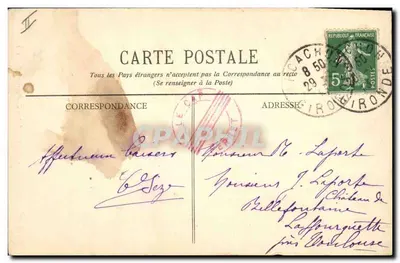 II
CARTE POSTALE
Tous les Pays étrangers n'acceptent pas la Correspondance au recto
(Se renseigner à la Poste)
CORRESPONDANCE
ADRESSE
RÉPUBLIQUE FRANÇAISE
5
8 50
29
GIRONDE
Affectueux baisers
Monsieur M. Laporte
Monsieur J. Laporte
Château de
Bellefontaine
Lafourguette
près Toulouse